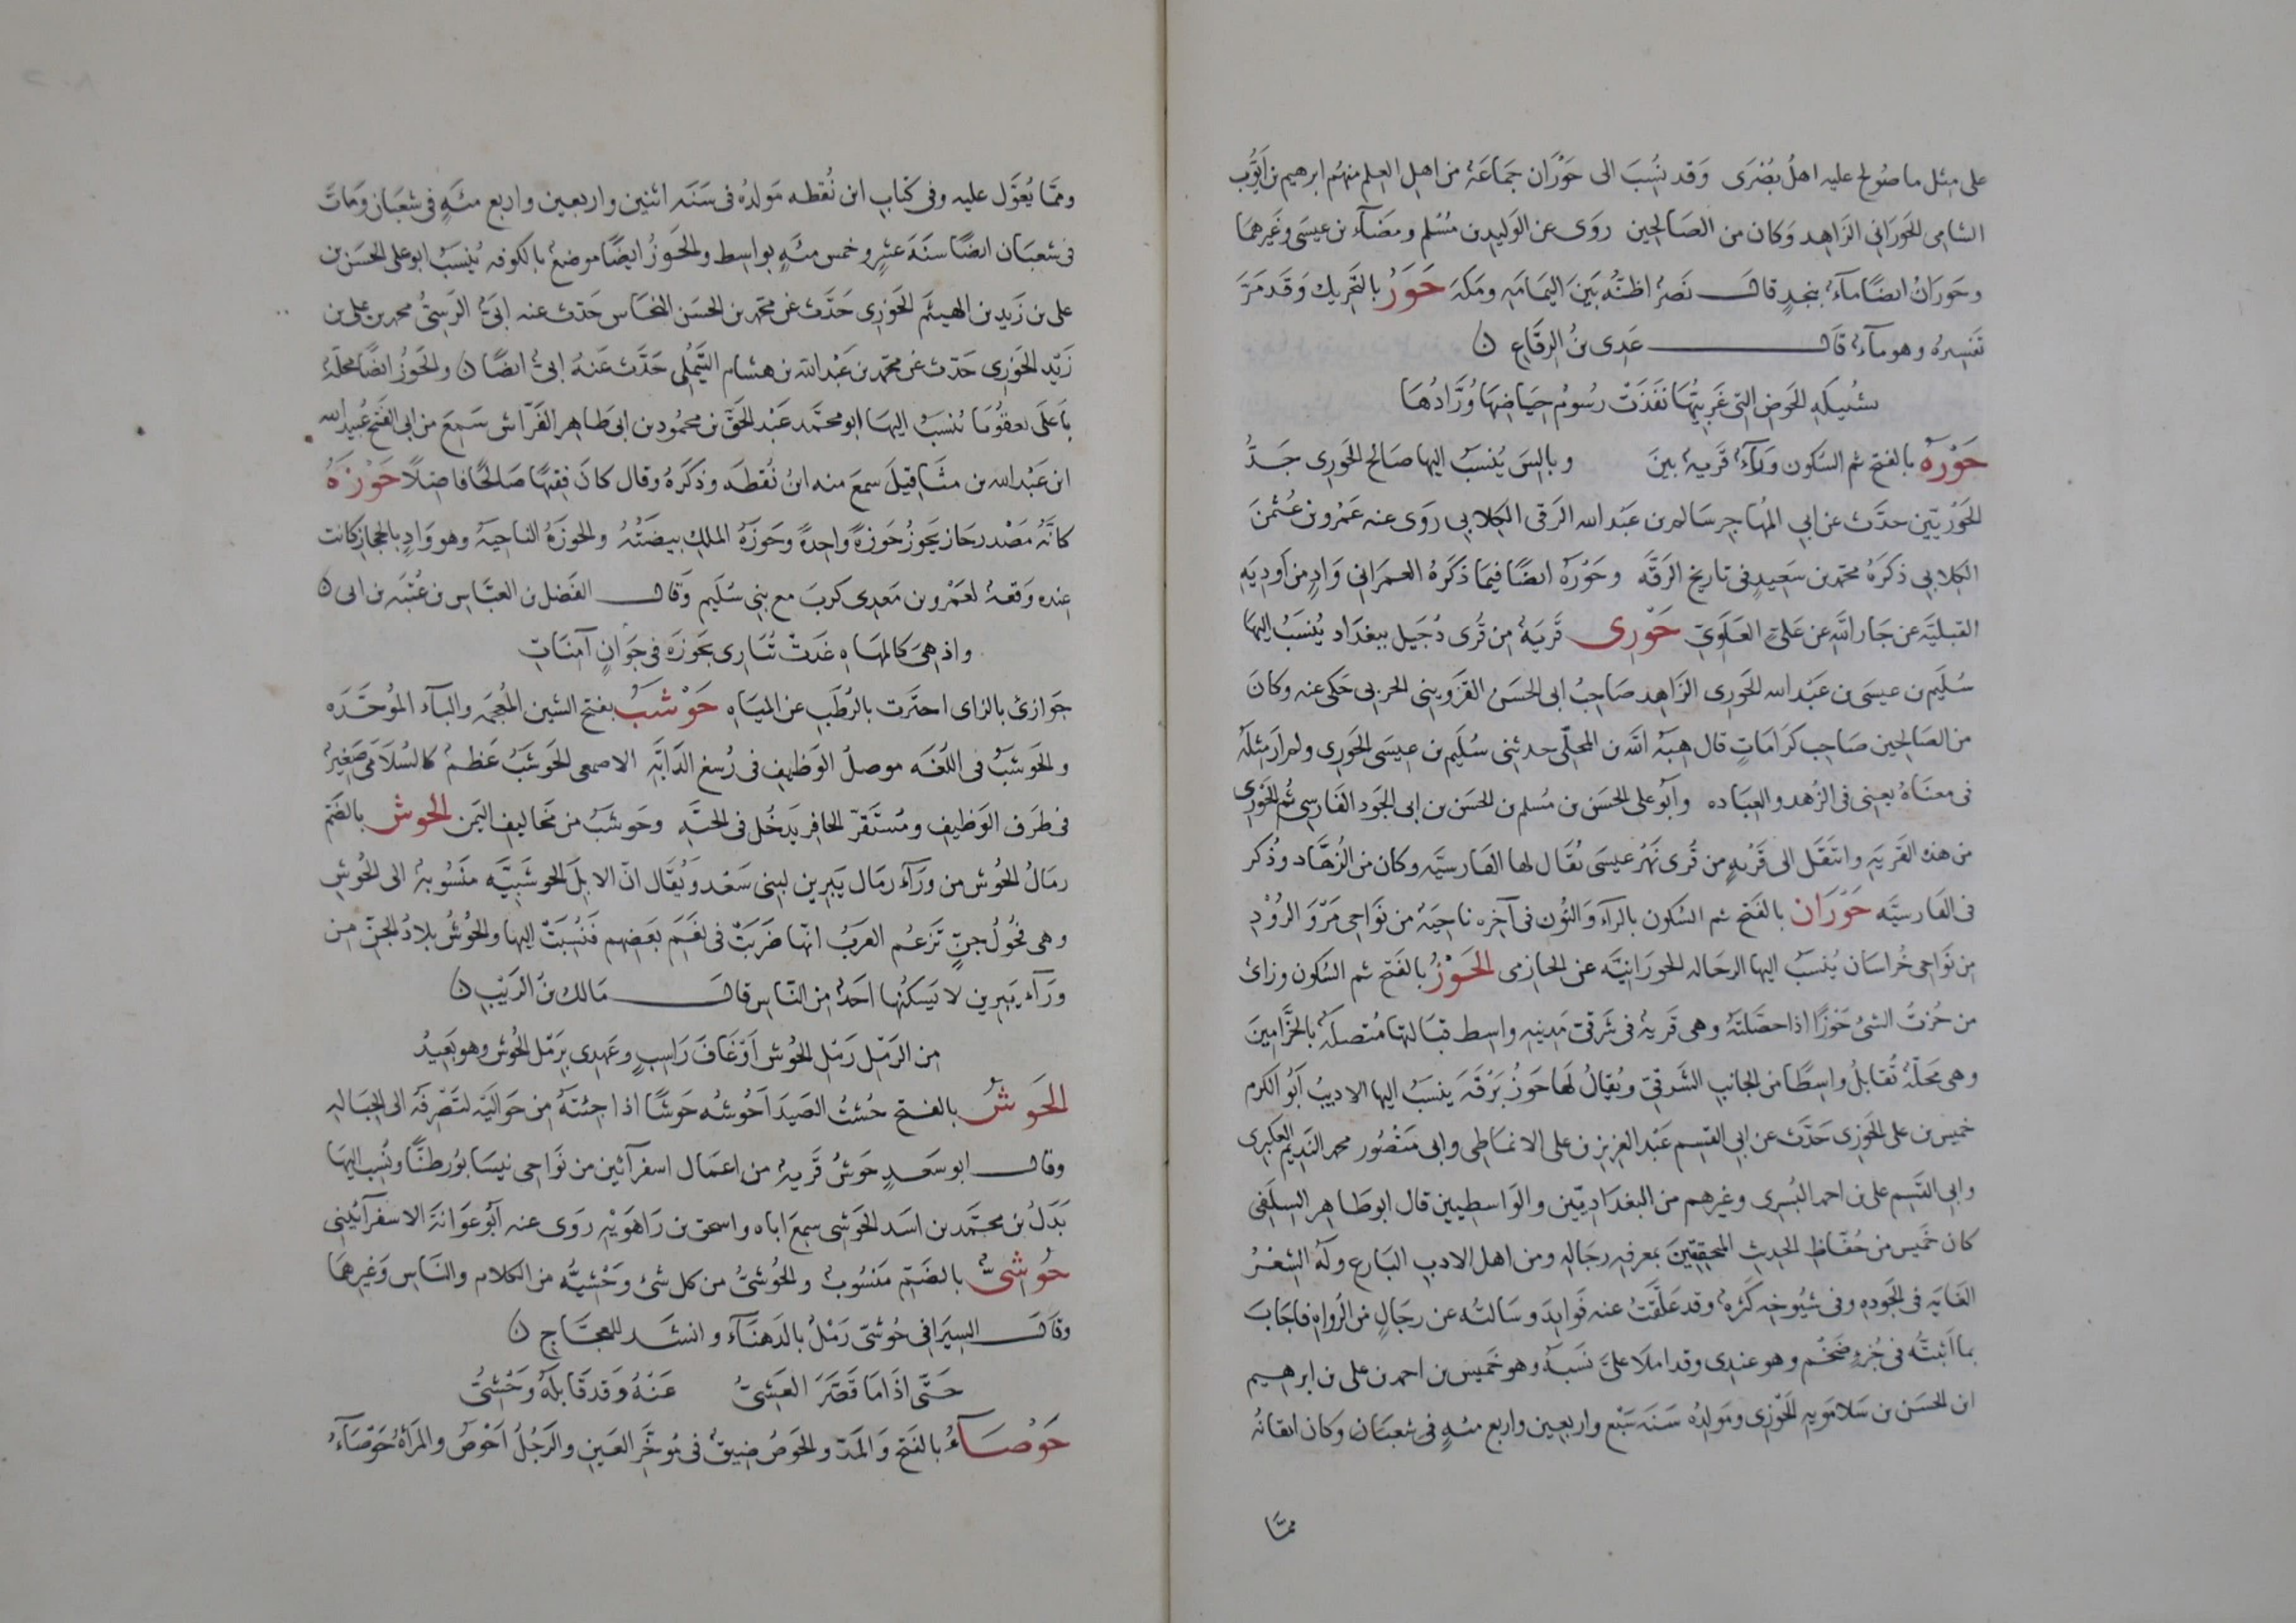 على مثل ما صُولح عليه اهلُ بُصْرَى وَقد نُسِبَ الى حَوْرَان جَمَاعَةٌ من اهل العِلم منهُم ابرهيم بن اَيّوُبَ
الشامى الحَوْرَانى الزاهِد وَكان من الصَالحين روَى عن الوَليد بن مُسْلم ومضآء بن عيسَى وغَيرهمَا
وحَورَانُ ايضًا مآءٌ بنجدٍ قال نَصرٌ اظنُّه بَينَ اليمَامَهِ ومكهَ حَوَرُ بالتَحريك وَقَد مَرَّ
تَفسِيرهُ وهو مآءٌ قال عَدِى بنُ الرقَاع ن
بشُبيكَهِ الحَوضِ التى غَربِيُّهَا نَفَذَتْ رسُومُ حِيَاضِهَا وُرَّادُهَا
حَوْرَه بالفتح ثم السُكون وَرآءٌ قَريهٌ بينَ وبالِسَ يُنسَبُ اليها صَالح الحَورى جَدُّ
الحَوْريّين حدَّث عن ابى المهُاجِر سَالم بن عَبْد الله الرَقى الكِلابى روَى عنه عَمْرو بن عُثمنَ
الكِلابى ذكرَهُ محمّد بن سَعِيدٍ فى تاريخ الرَقَّه وحَوْرَه ايضًا فيمَا ذكَرَهُ العمرَانى وَادٍ من اَودِيَهِ
القبليَّه عن جَارالله عن عَلىٍّ العَلَوىّ حَوْرِى قَريَهٌ من قُرى دُجَيل ببغدَاد يُنسَبُ اليهَا
سُلَيم بن عيسَى بن عَبْد الله الحَورِى الزَاهِد صَاحبُ ابى الحسَن القَزوينى الحربى حَكى عنه وكانَ
من الصَالحِين صَاحِب كَرَامَاتٍ قال هِبَهُ الله بن المجلّى حدثنى سُلَيم بن عيسَى الحَورِى ولم اَرَ مثلَهُ
فى معنَاهُ يعنِى فى الزُهد والعِبَاده وابُو على الحسَن بن مُسلم بن الحسَن بن ابى الجَود الفَارِسى ثُم الحَوْرِى
من هذه القَريَهِ وانتَقَل الى قَرْيهٍ من قُرى نَهْر عيسَى يُقَال لها الفَارسيَّه وكان من الزُهَّاد وذُكر
فى الفَارسيَّه حَوْرَان بالفَتح ثم السُكون بالرآء وَالنُون فى آخِره ناحِيَهٌ من نَوَاحى مَرْوَ الرُوْدِ
من نَوَاحى خُراسَان يُنسَبُ اليها الرحَاله الحورَانِيَّه عن الحازمى الحَوْزُ بالفَتح ثم السُكون وزاىٌ
من حُزتُ الشئَ حَوْزًا اذا حصَّلتَهُ وهى قَريهٌ فى شَرقىّ مَدينهِ واسط قبَالتها مُتصلَهٌ بالحَزَّامِينَ
وهى محَلّهٌ تُقابلُ واسِطًا من الجانِب الشَرقىّ ويُقالُ لَها حَوْزُ بَرْقَهَ ينسَبُ اليها الاديبُ ابُو الكرم
خميس بن على الحَوزِى حَدَّث عن ابى القسِم عَبْد العزِيز بن على الانماطى وابى مَنْصُور محمد النَدِيم العكبرى
وابى القَسِم على بن احمد البُسرِى وغيرهم من البغدَاديّين والوَاسِطيين قال ابو طَاهِر السِلَفى
كان خَميس من حُفّاظ الحديثِ المحقِقيّنَ بمعرفهِ رجَالهِ ومن اهل الادبِ البَارع ولَهُ الشِعْرُ
الغَايَه فى الجَودهِ وفى شيُوخهِ كَثرهٌ وقد عَلّقتُ عنه فَوائدَ وسَالتُه عن رجَالٍ من الرُواهِ فاجَابَ
بما اَثبتُّه فى جُزءٍ ضَخْم وهو عندِى وقد املاَ علىَّ نَسَبَهُ وهو خَميس بن احمد بن على بن ابرهيم
ابن الحسَن بن سَلامَويهِ الحَوْزِى ومَولِدُه سَنَه سَبْع واربعين واربع مئهٍ فى شعبَان وكان اتقانُهُ
ممّا
وممَّا يُعَوَّل عليه وفى كتَابِ ابن نُقطه مَولدُهُ فى سَنَه اثنين واربعين واربع مئهٍ فى شعبَان وَمَاتَ
فى شعبَان ايضًا سنَهَ عشرٍ وخمس مئهٍ بواسِط والحَوْزُ ايضًا موضعٌ بالكوفه يُنسَبُ ابو على الحسَن بن
على بن زَيد بن الهيثَم الحَوْزِى حَدَّث عن محمّد بن الحسَن النحَاس حَدّث عنه ابىُّ الرَسِىُّ محمد بن على بن
زَيْد الحَوْزِى حَدّث عن محمّد بن عَبْد الله بن هشام التَيْمُلى حَدَّث عَنهُ ابىٌّ ايضًا ن والحَوزُ ايضًا محلَّهٌ
باَعلَى بعقوُبَا يُنسَبُ اليهَا ابو محمَّد عَبْد الحَقّ بن محمُود بن ابى طَاهِر الفَرّاش سَمعَ من ابى الفَتح عُبيدالله
ابن عَبْد الله بن شَاتيلَ سمعَ منه ابنُ نُقطهَ وذكَرَهُ وقال كانَ فقِيهًا صَالحًا فاضِلًا حَوْزَهُ
كانَّهُ مَصْدر حَازَ يَحُوزُ حَوْزهً واحِدهً وحَوزَهُ الملِكِ بيضَتُهُ والحوزَهُ الناحيَهُ وهو وَادٍ بالحجَاز كانت
عِنده وَقعَهٌ لعَمْرو بن مَعدِى كربَ مع بنى سُلَيم وَقال الفَضل بن العبَّاس بن عُتْبَه بن ابى ن
واذ هىَ كالمهَاهِ غَدَتْ تُبَارِى بحَوزَهَ فى جَوَازٍ آمنَاتِ
جوازئ بالزاى اجتَزَت بالرُطبِ عن الميَاهِ حَوْشَبُ بفتح الشين المُعجَمه والبآء الموُحَّدَه
والحَوشَبُ فى اللُغَه موصلُ الوَظِيف فى رُسغ الدَابَّهِ الاصمعى الحَوشَبُ عَظمٌ كالسُلَامَى صَغِيرٌ
فى طَرَف الوَظِيفِ ومُستَقرّ الحافِر يَدخُل فى الجُبَّهِ وحَوشَبُ من مَخاليف اليَمن الحُوش بالضَم
رمَالُ الحُوش من ورَآء رمَال يَبرين لبنى سَعْد وَيُقَال انّ الابِلَ الحوشيَّه مَنسُوبهٌ الى الحُوشِ
وهى فحُولُ جنٍّ تَزعُم العرَبُ انّها ضَرَبَتْ فى نعَم بَعضهم فَنُسِبَتْ اليها والحُوشُ بلادُ الجنّ من
ورَآء يَبرين لا يَسكنُها احَدٌ من النّاس قال مَالك بنُ الرَيْب ن
من الرَمْل رَمْل الحُوش اَوْ غَافَ رَاسِبٍ وعَهدِى برَمْل الحُوش وهو بَعِيدُ
الحَوشُ بالفتح حُشتُ الصَيدَ اَحُوشُه حَوشًا اذا جئتَهُ من حَوَاليَه لتَصْرِفَهُ الى الحِبَالهِ
وقال ابو سَعدٍ حَوشُ قَريهٌ من اعمَال اسفرآئين من نَوَاحى نيسَابُور ظنًّا ونُسِب اليهَا
بَدَلُ بن محمَّد بن اسَد الحَوشى سمعَ اباه واسحق بن رَاهَويْهِ رَوى عنه ابُو عَوَانَهَ الاسفرآئينى
حُوشىٌّ بالضَمّ مَنسُوبٌ والحُوشىُّ من كل شئ وَحْشيُّه من الكلام والنَاس وَغيرهمَا
وقَال السيَرافى حُوشىّ رَمْلٌ بالدَهنَآء وانشَد للعجَّاج ن
حَتَّى اذَا مَا قَصَّرَ العَشىُّ عَنْهُ وَقد قَابلَهُ وَحْشىُّ
حَوْصَآءُ بالفَتح وَالمَدّ والحَوَصُ ضِيقٌ فى مُوخَّر العَينِ والرَجُلُ اَحْوصُ والمَراَهُ حَوْصَآءُ